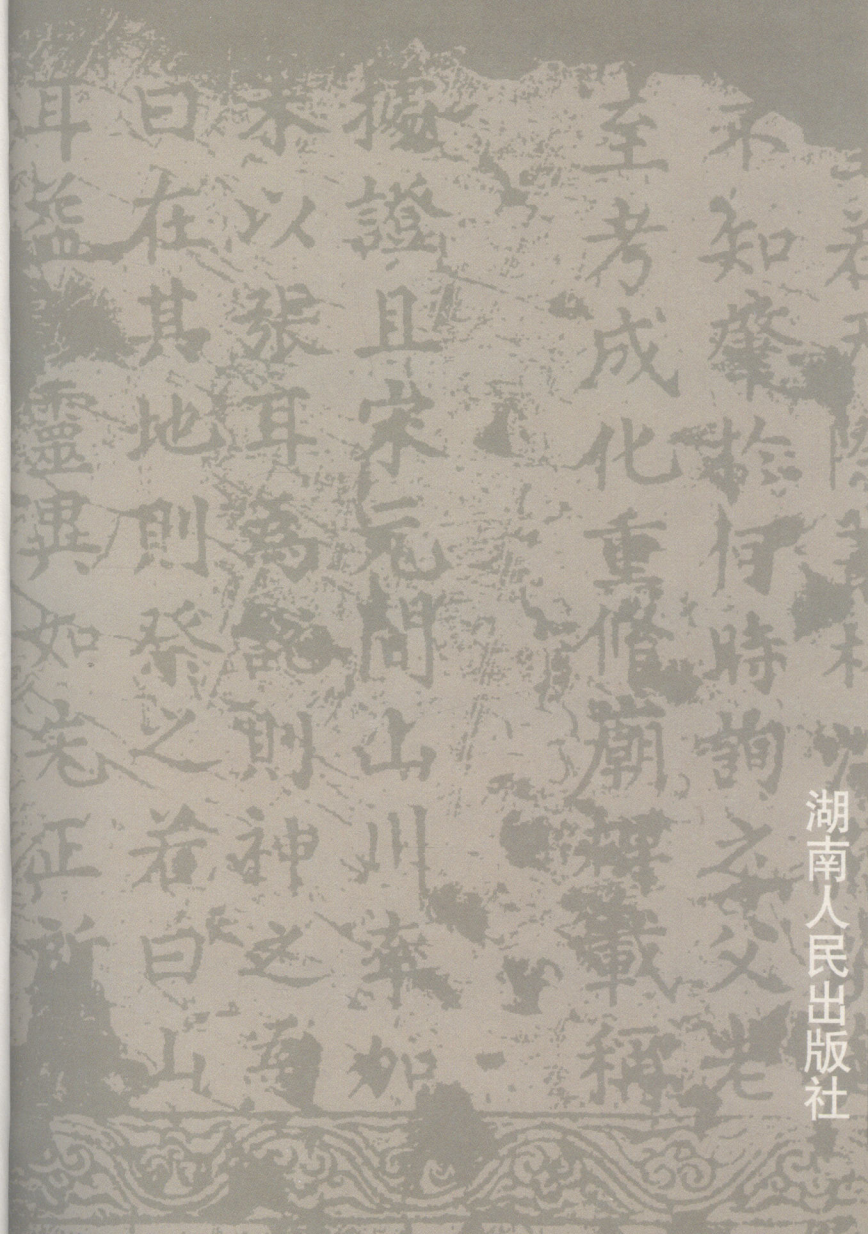 不知肇於何時詢之父老
至考成化重脩廟碑載稱
據證且宋元間山川率加
未以張耳為認則神之
曰在其地則祭之若曰山
耳 靈異如宅正所
湖南人民出版社